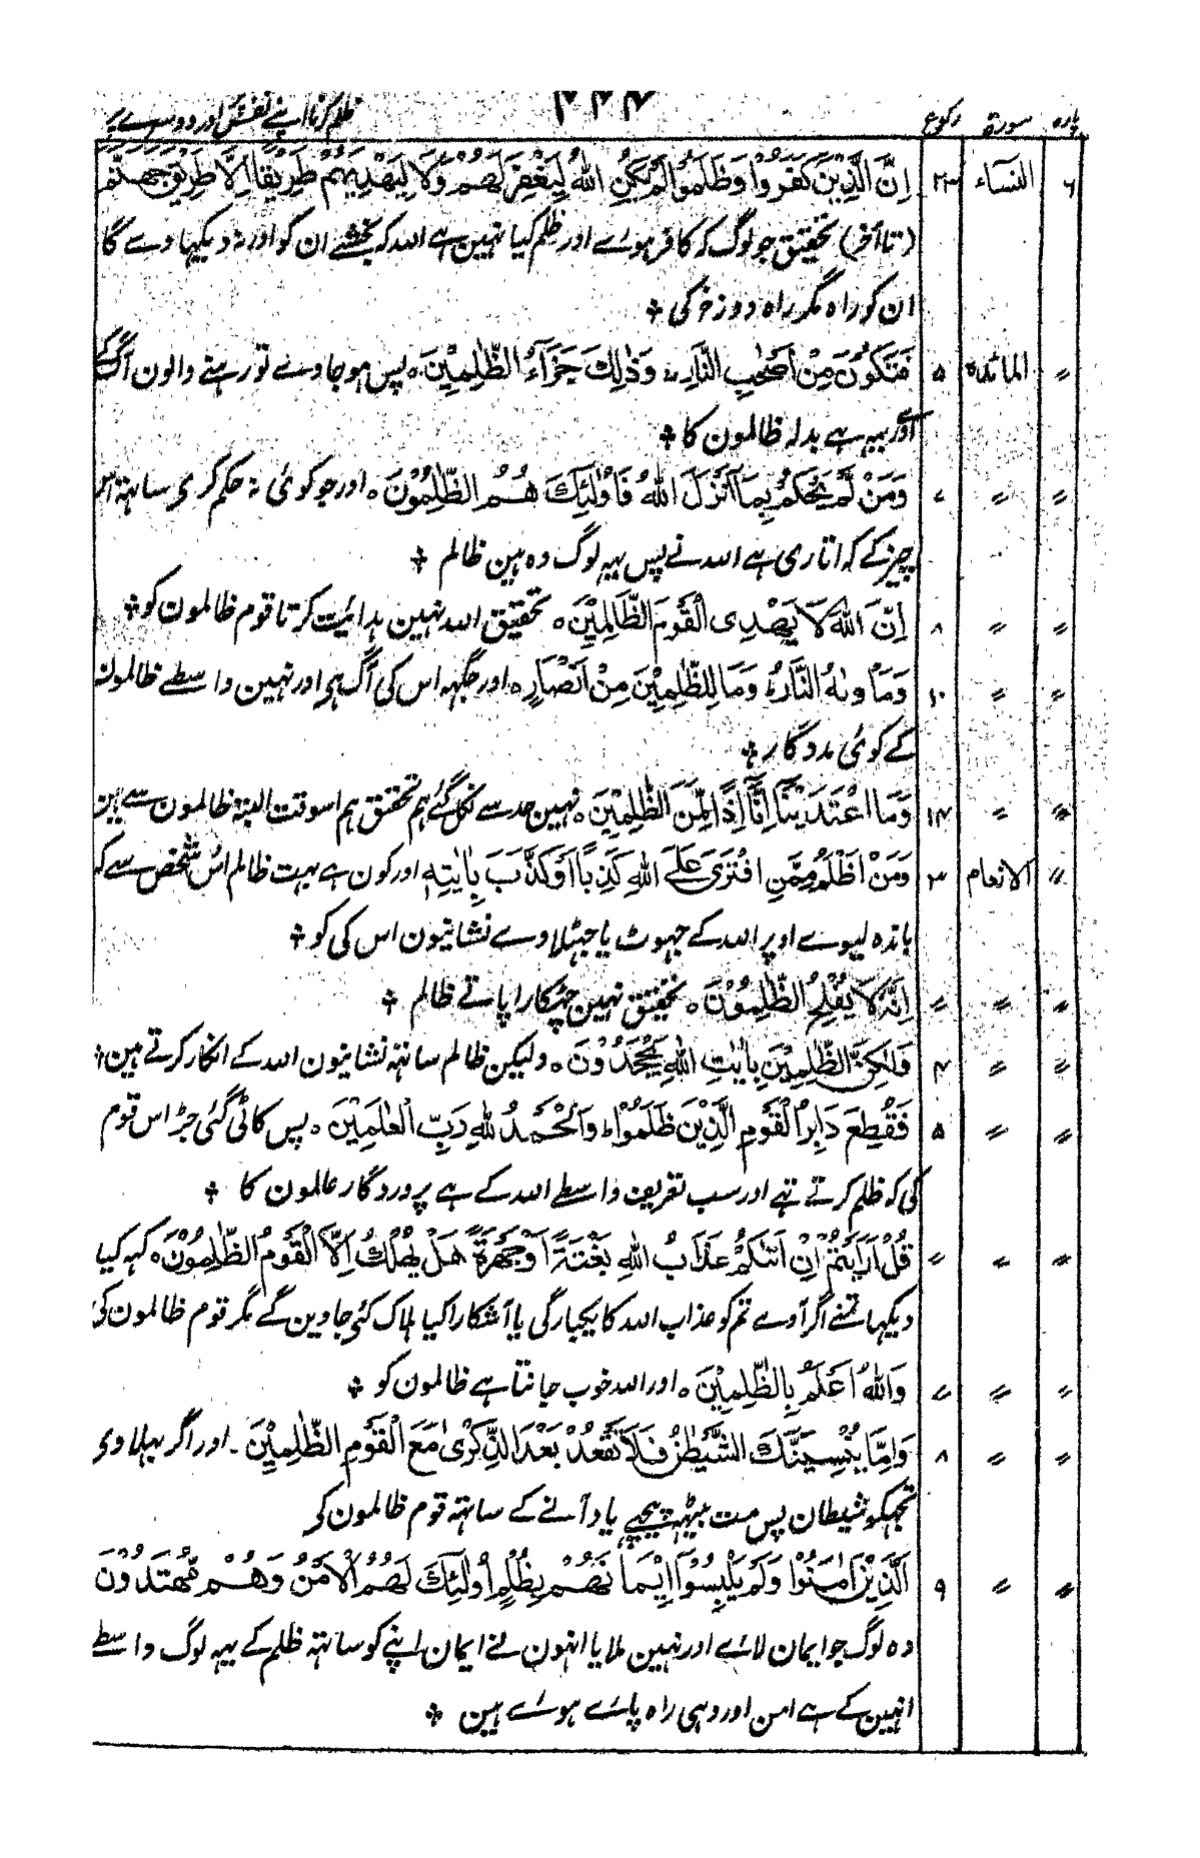 پارہ سورۃ رکوع ۲۲۴ ظلم کرنا اپنے نفس اور دوسرے پر
۶ النساء ۲۳ اِنَّ الَّذِیْنَ کَفَرُوْا وَظَلَمُوْا لَمْ یَکُنِ اللہُ لِیَغْفِرَ لَھُمْ وَلَا لِیَھْدِیَھُمْ طَرِیْقًا اِلَّا طَرِیْقَ جَھَنَّمَ
(تا آخر) تحقیق جو لوگ کہ کافر ہوئے اور ظلم کیا نہین ہے اللہ کہ بخشے ان کو اور نہ دیکھاوے گا
ان کو راہ مگر راہ دوزخ کی ٭
〃 المائدہ ۵ فَتَکُوْنَ مِنْ اَصْحٰبِ النَّارِ ۚ وَذٰلِکَ جَزٰٓءُ الظّٰلِمِیْنَ ہ پس ہو جاوے تو رہنے والون آگ کے
اور یہہ ہے بدلہ ظالمون کا ٭
〃 〃 ۷ وَمَنْ لَّمْ یَحْکُمْ بِمَا اَنْزَلَ اللہُ فَاُولٰٓئِکَ ھُمُ الظّٰلِمُوْنَ ہ اور جو کوئی نہ حکم کری ساتھ اس
چیز کے کہ اتاری ہے اللہ نے پس یہہ لوگ وہ ہین ظالم ٭
〃 〃 ۸ اِنَّ اللہَ لَا یَھْدِی الْقَوْمَ الظَّالِمِیْنَ ہ تحقیق اللہ نہین ہدائیت کرتا قوم ظالمون کو ٭
〃 〃 ۱۰ وَمَاْوٰىہُ النَّارُ ؕ وَمَا لِلظّٰلِمِیْنَ مِنْ اَنْصَارٍ ہ اور جگہہ اس کی آگ ہی اور نہین واسطے ظالمون
کے کوئی مددگار ٭
〃 〃 ۱۴ وَمَا اعْتَدَیْنَآ اِنَّآ اِذًا لَّمِنَ الظّٰلِمِیْنَ ہ نہین حد سے نکل گئے ہم تحقیق ہم اسوقت البتہ ظالمون سے ہین
〃 الانعام ۳ وَمَنْ اَظْلَمُ مِمَّنِ افْتَرٰی عَلَی اللہِ کَذِبًا اَوْ کَذَّبَ بِاٰیٰتِہٖ اور کون ہے بہت ظالم اس شخص سے کہ
باندہ لیوے اوپر اللہ کے جہوٹ یا جہٹلاوے نشانیون اس کی کو ٭
〃 〃 〃 اِنَّہٗ لَا یُفْلِحُ الظّٰلِمُوْنَ ہ تحقیق نہین چھٹکارا پاتے ظالم ٭
〃 〃 ۴ وَلٰکِنَّ الظّٰلِمِیْنَ بِاٰیٰتِ اللہِ یَجْحَدُوْنَ ہ ولیکن ظالم ساتھ نشانیون اللہ کے انکار کرتے ہین ٭
〃 〃 ۵ فَقُطِعَ دَابِرُ الْقَوْمِ الَّذِیْنَ ظَلَمُوْا ؕ وَالْحَمْدُ لِلہِ رَبِّ الْعٰلَمِیْنَ ہ پس کاٹی گئی جڑ اس قوم
کی کہ ظلم کرتے تہے اور سب تعریف واسطے اللہ کے ہے پروردگار عالمون کا ٭
〃 〃 〃 قُلْ اَرَاَیْتَکُمْ اِنْ اَتٰىکُمْ عَذَابُ اللہِ بَغْتَۃً اَوْ جَھْرَۃً ھَلْ یُھْلَکُ اِلَّا الْقَوْمُ الظّٰلِمُوْنَ ہ کہہ کیا
دیکہا تمنے اگر آوے تم کو عذاب اللہ کا یکبارگی یا آشکارا کیا ہلاک کئے جاوین گے مگر قوم ظالمون کی
〃 〃 ۷ وَاللہُ اَعْلَمُ بِالظّٰلِمِیْنَ ہ اور اللہ خوب جانتا ہے ظالمون کو ٭
〃 〃 ۸ وَاِمَّا یُنْسِیَنَّکَ الشَّیْطٰنُ فَلَا تَقْعُدْ بَعْدَ الذِّکْرٰی مَعَ الْقَوْمِ الظّٰلِمِیْنَ ۔ اور اگر بہلاوی
تجہکو شیطان پس مت بیٹہ پیچہے یاد آنے کے ساتھ قوم ظالمون کے
〃 〃 ۹ اَلَّذِیْنَ اٰمَنُوْا وَلَمْ یَلْبِسُوْٓا اِیْمَانَھُمْ بِظُلْمٍ اُولٰٓئِکَ لَھُمُ الْاَمْنُ وَھُمْ مُّھْتَدُوْنَ
وہ لوگ جو ایمان لائے اور نہین ملایا انہون نے ایمان اپنے کو ساتھ ظلم کے یہہ لوگ واسطے
انہین کے ہے امن اور وہی راہ پائے ہوئے ہین ٭